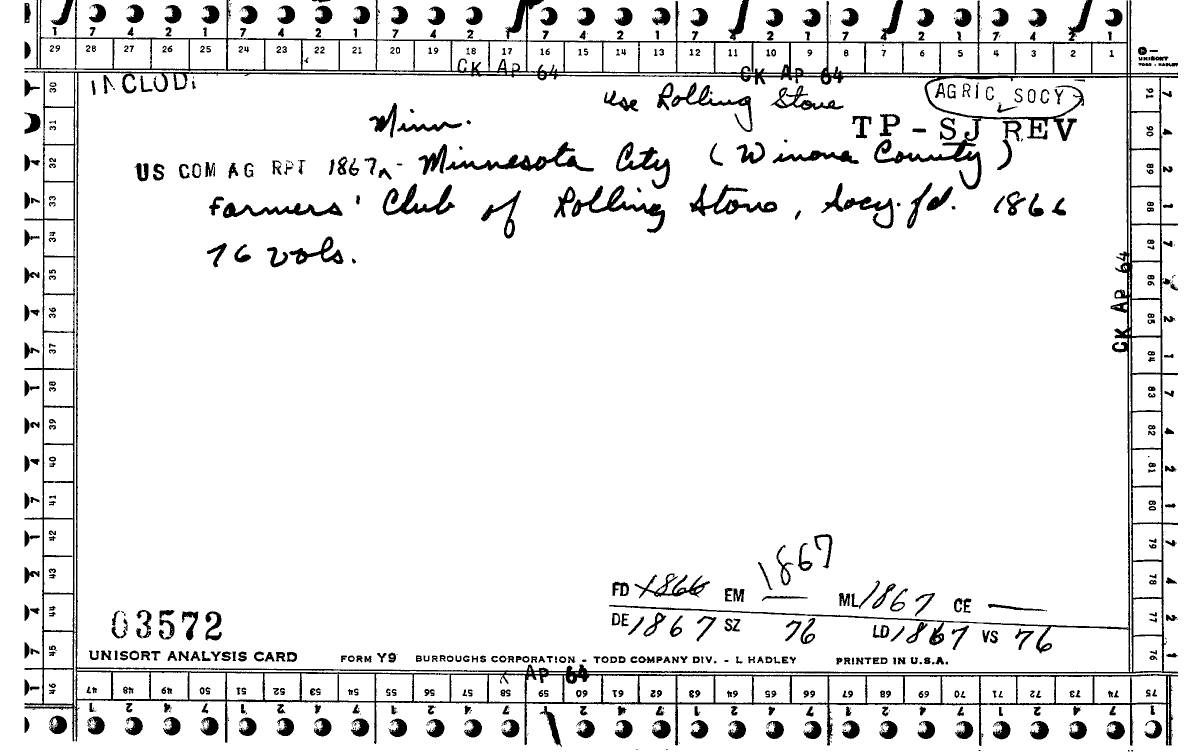 1 7 4 2 1 7 4 2 1 7 4 2 1 7 4 2 1 7 4 2 1 7 4 2 1 7 4 2 1
29 28 27 26 25 24 23 22 21 20 19 18 17 16 15 14 13 12 11 10 9 8 7 6 5 4 3 2 1
UNISORT
TODD - HADLEY
CK AP 64 CK AP 64
INCLUD
use Rolling Stone
AGRIC SOCY
Minn.
TP-SJ REV
US COM AG RPT 1867 - Minnesota City (Winona County)
Farmers' Club of Rolling Stone, Socy. fd. 1866
76 vols.
CK AP 64
30 31 32 33 34 35 36 37 38 39 40 41 42 43 44 45 46
91 90 89 88 87 86 85 84 83 82 81 80 79 78 77 76
1867
FD 1866 EM — ML 1867 CE —
DE 1867 SZ 76 LD 1867 VS 76
03572
UNISORT ANALYSIS CARD FORM Y9 BURROUGHS CORPORATION - TODD COMPANY DIV. - L HADLEY PRINTED IN U.S.A.
AP 64
47 48 49 50 51 52 53 54 55 56 57 58 59 60 61 62 63 64 65 66 67 68 69 70 71 72 73 74 75